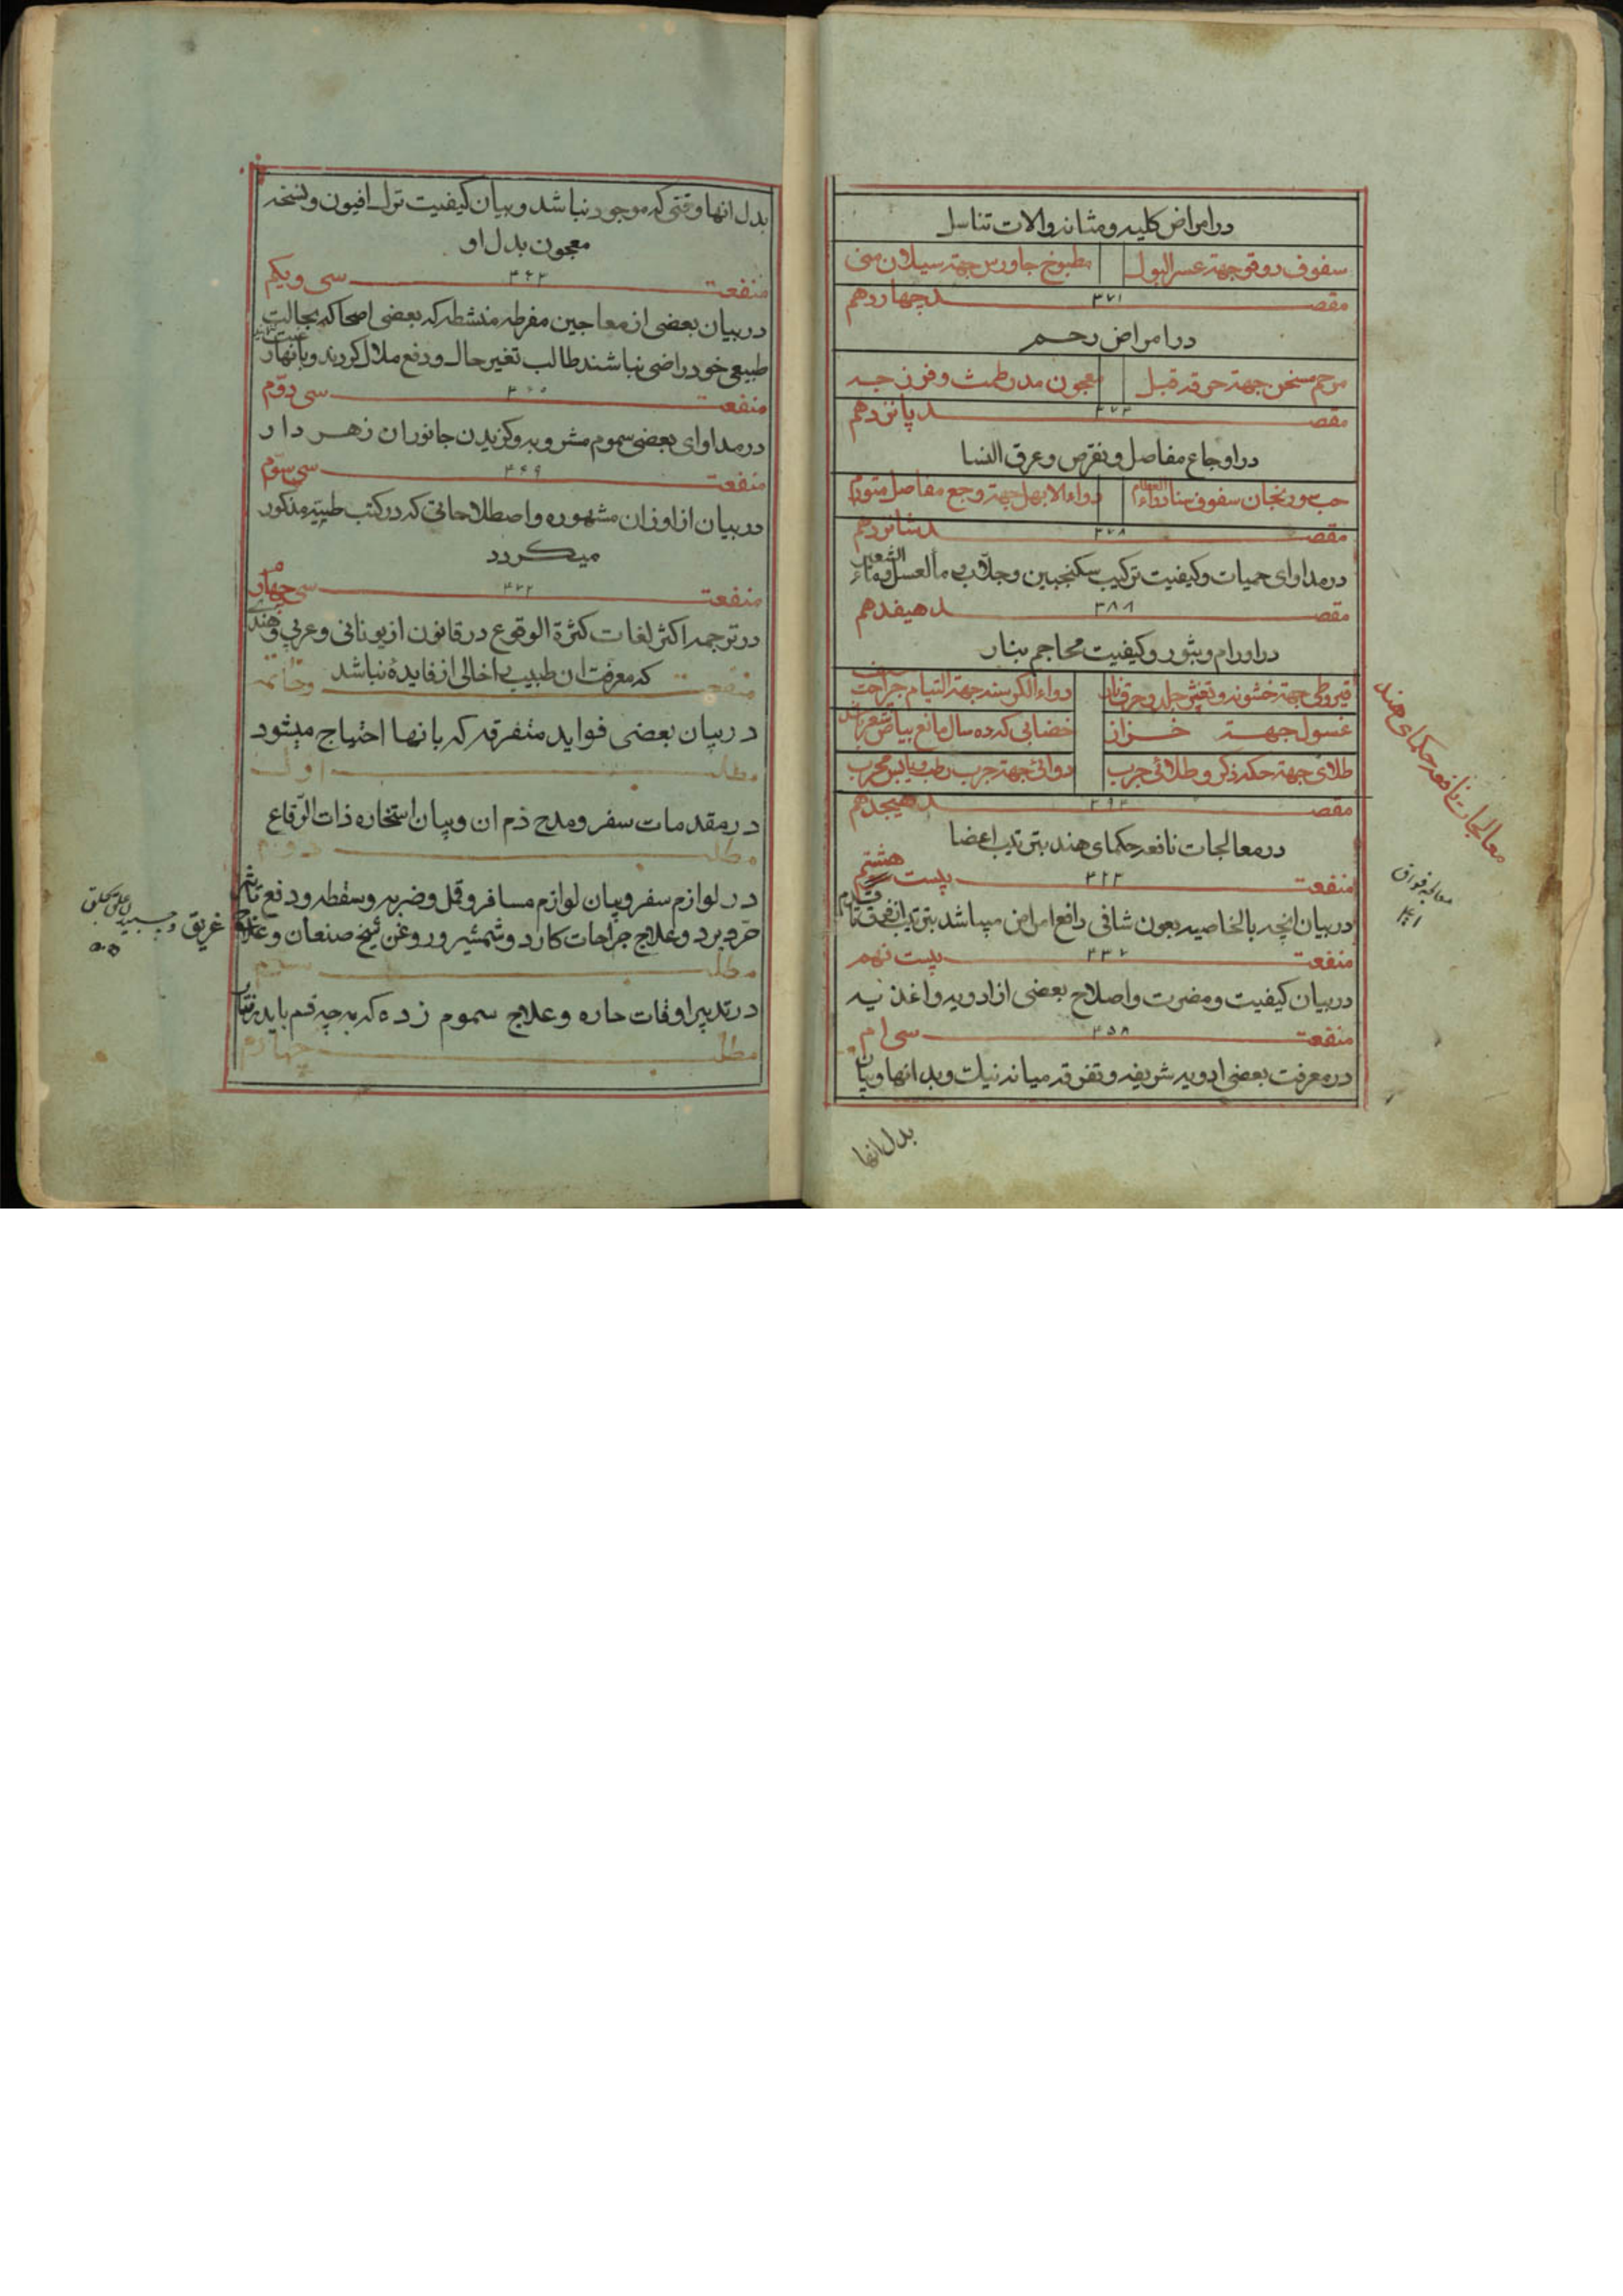 در امراض کلیه و مثانه و الات تناسل
سفوف دوقو جهته عسر البول
مطبوخ جاورس جهته سیلان منی
مقصد چهاردهم
۳۷۱
در امراض رحم
مرهم سخن جهته حرقه قبل
معجون مدر طمث و فرزجه
مقصد پانزدهم
۳۷۳
در اوجاع مفاصل و نقرس و عرق النسا
حب سورنجان سفوف حنا
دواء الابهل جهته وجع مفاصل متورم
مقصد شانزدهم
۳۷۸
در مداوای حمیات و کیفیت ترکیب سکنجبین و جلاب و ماء العسل و ماء الشعیر
مقصد هیفدهم
۳۸۸
در اورام و بثور و کیفیت محاجم بنار
قیروطی جهته خشونه و تقشر جلد و حرق نار
دواء الکرسنه جهته التیام جراحت
غسول جهته خزاز
خضابی که ده سال مانع بیاض شعر باشد
طلای جهته حکه ذکر و طلائی جرب
دوائی جهته جرب رطب و یابس مجرب
مقصد هیجدهم
۳۹۳
در معالجات نافعه حکمای هند بترتیب اعضا
منفعت بیست هشتم
۴۲۳
در بیان انچه بالخاصیه بعون شافی دافع امراض میباشد بترتیب از فرق تا قدم
منفعت بیست نهم
در بیان کیفیت و مضرت و اصلاح بعضی از ادویه و اغذیه
منفعت سی ام
۴۵۸
در معرفت بعضی ادویه شریفه و تفرقه میانه نیک و بد انها و بیان
بدل انها
معالجات نافعه حکمای هند
معالجه فواق
بدل انها وقتی که موجود نباشد و بیان کیفیت ترک افیون و نسخه
معجون بدل او
منفعت سی و یکم
۴۶۳
در بیان بعضی از معاجین مفرطه منشطه که بعضی اصحا که بحالت
طبیعی خود راضی نباشند طالب تغیر حال و رفع ملال کردند و بانها رغبت نمایند
منفعت سی دوم
۴۶۵
در مداوای بعضی سموم مشروبه و کزیدن جانوران زهر دار
منفعت سی سوم
۴۶۹
در بیان از اوزان مشهوره و اصطلاحاتی که در کتب طبیه مذکور
میکردد
منفعت سی چهارم
۴۷۲
در ترجمه اکثر لغات کثرة الوقوع در قانون از یونانی و عربی و هندی
که معرفت ان طبیب را خالی از فایدهٔ نباشد
منفعت و خاتمه
در بیان بعضی فواید متفرقه که بانها احتیاج میشود
مطلب اول
در مقدمات سفر و مدح ذم ان و بیان استخاره ذات الرقاع
مطلب دوم
در لوازم سفر و بیان لوازم مسافر و قمل و ضربه و سقطه و دفع تاثیر
حر و برد و علاج جراحات کارد و شمشیر و روغن شیخ صنعان و علاج
غریق و چسبیدن علق بحلق
۵۰۵
مطلب سوم
در تدبیر اوقات حاره و علاج سموم زده که به چه قسم باید
مطلب چهارم